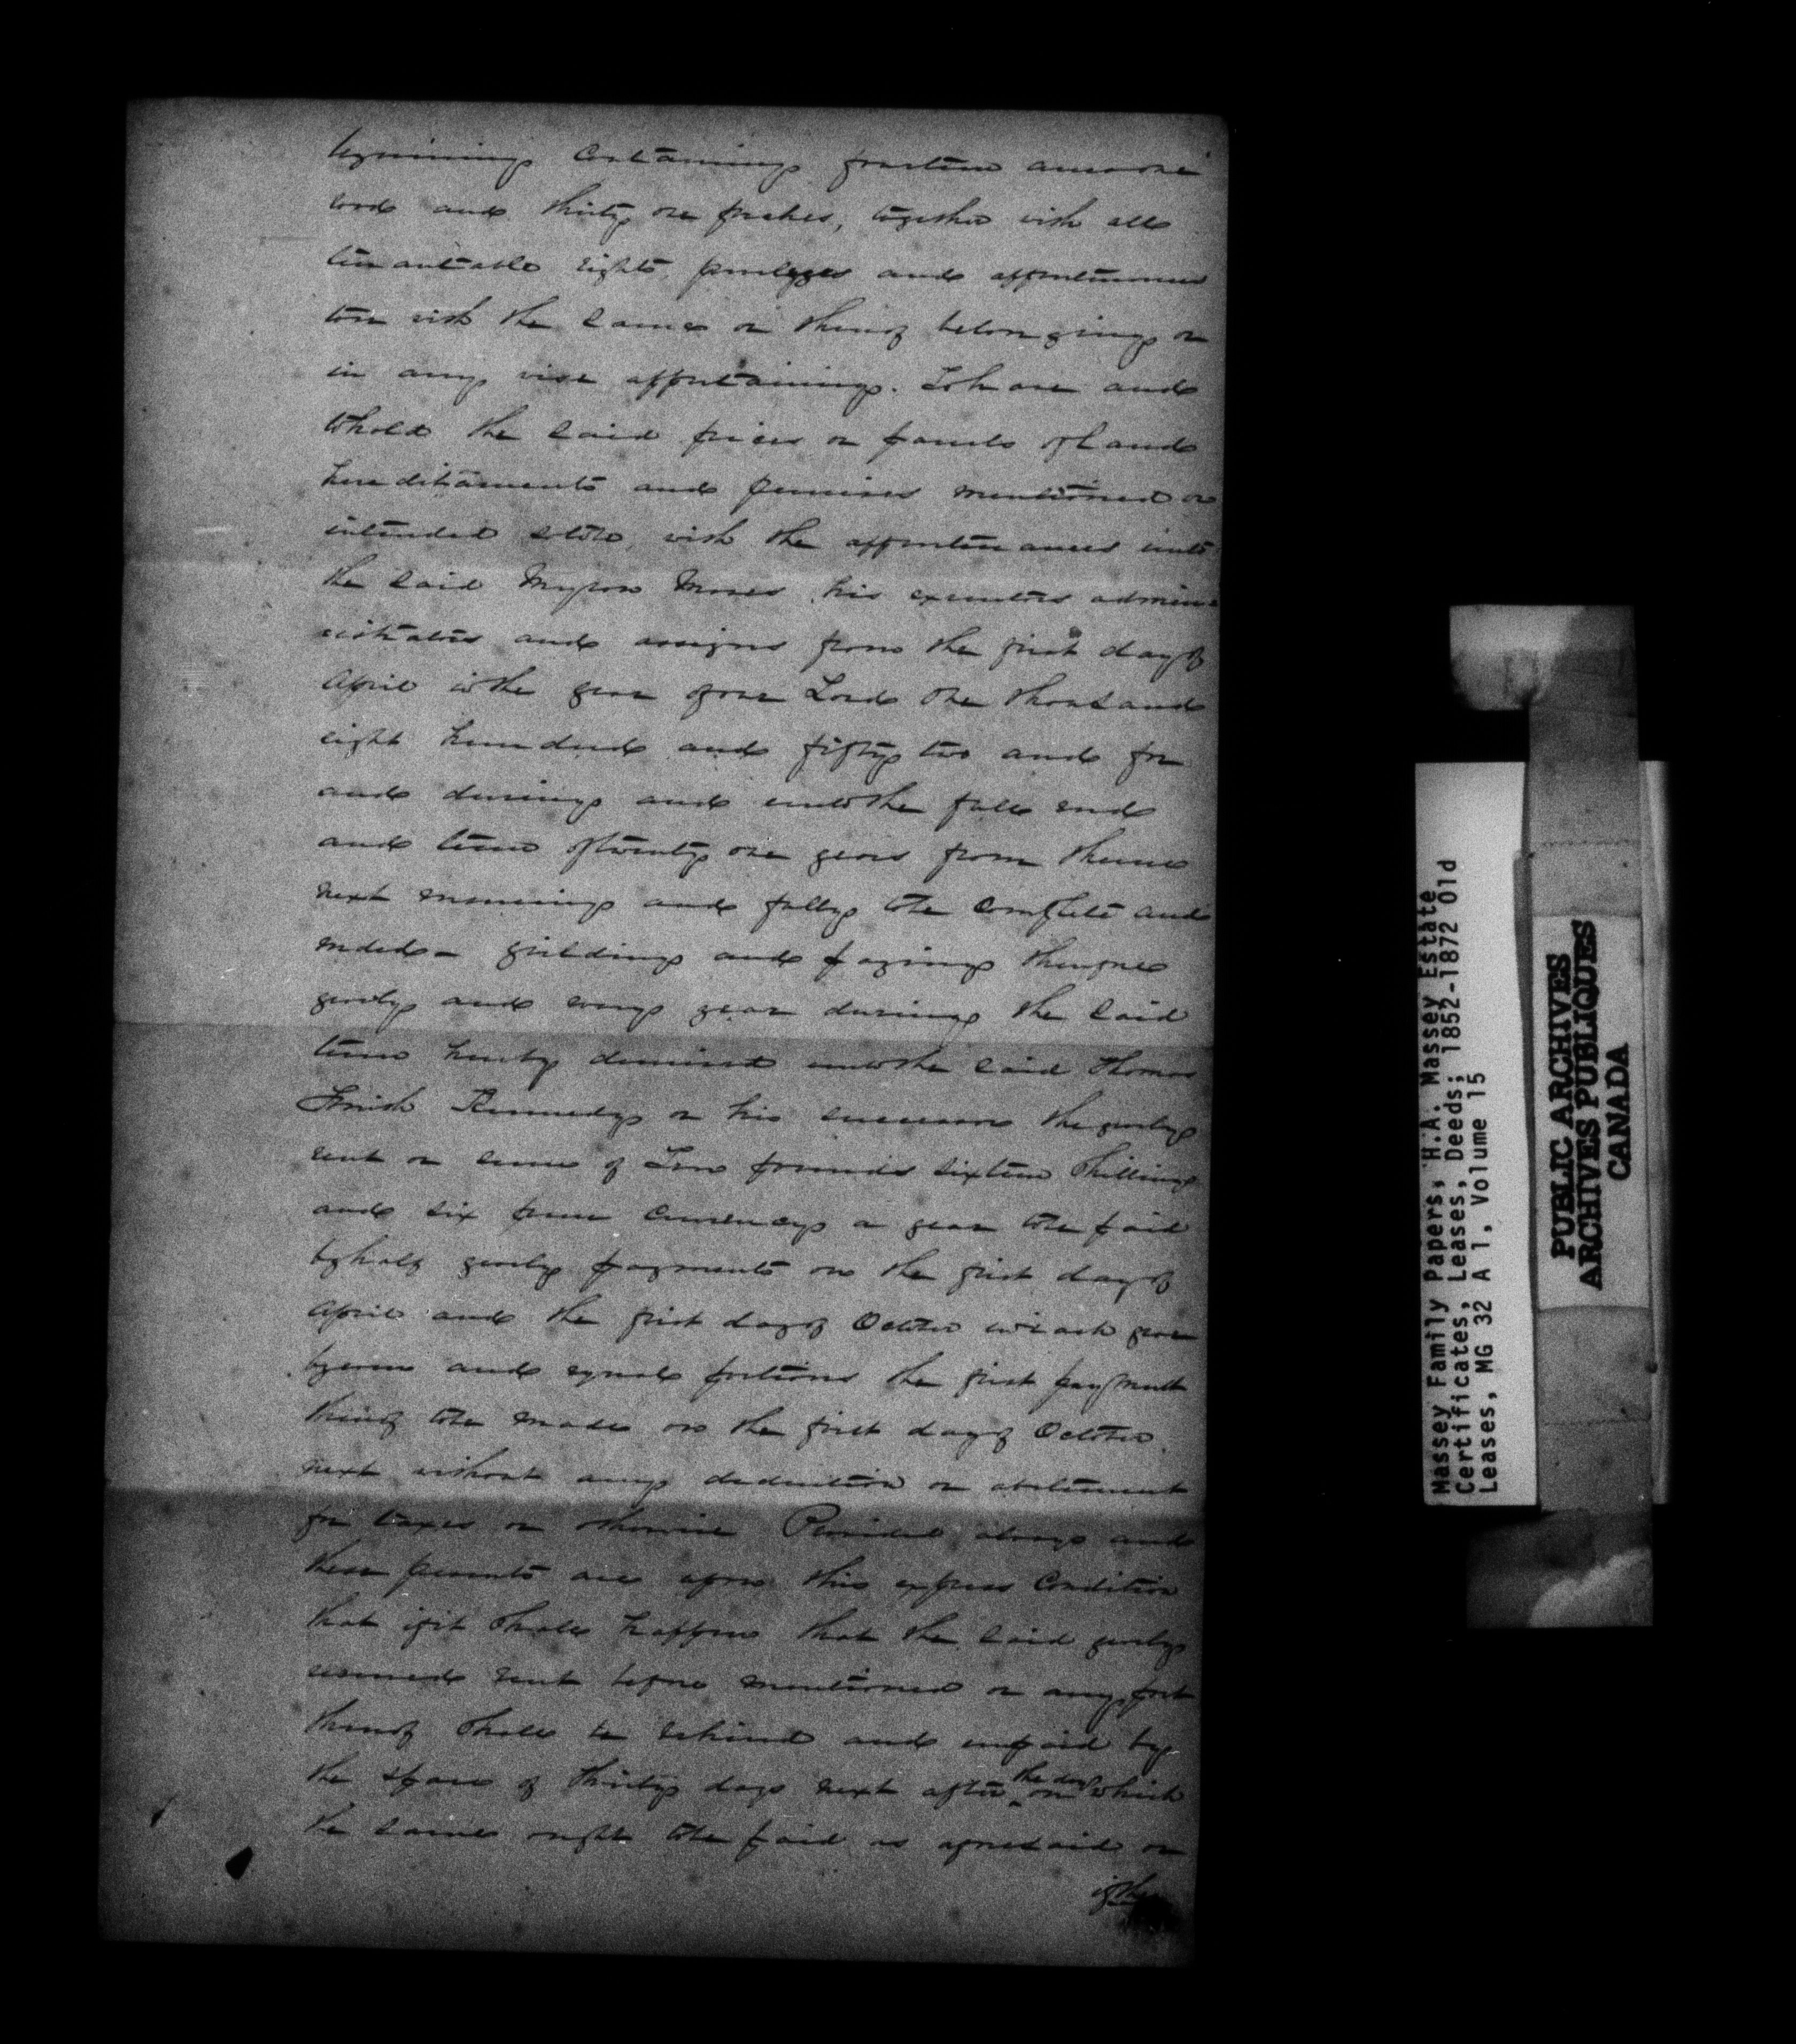 beginning containing fourteen acres one
rood and thirty one perches, together with all
tenantable rights, privileges and appurtenances
to or with the same or thereof belonging or
in any wise appertaining. To have and
to hold the said pieces or parcels of land
hereditaments and premises mentioned or
intended so to be, with the appurtenances unto
the said Myron Moses, his executors admin-
istrators and assigns from the first day of
April in the year of our Lord One thousand
eight hundred and fifty two and for
and during and unto the full end
and term of twenty one years from thence
next ensuing and fully to be complete and
ended – yielding and paying therefore
yearly and every year during the said
term hereby demised unto the said Thomas
Smith Kennedy or his successors the yearly
rent or sum of pounds sixteen Shillings
and six pence Currency a year to be paid
by half yearly payments on the first day of
April and the first day of October in each year
by even and equal portions the first payment
thereof to be made on the first day of October
next without any deduction or abatement
for taxes or otherwise Provided always and
these presents are upon this express Condition
that if it shall happen that the said yearly
reserved rent before mentioned or any part
thereof shall be behind and unpaid by
the space of thirty days next after the day on which
the same ought to be paid as aforesaid or
if the
Massey Family Papers, H.A. Massey Estate
Certificates, Leases, Deeds; 1852-1872 Old
Leases, MG 32 A 1, Volume 15
PUBLIC ARCHIVES
ARCHIVES PUBLIQUES
CANADA